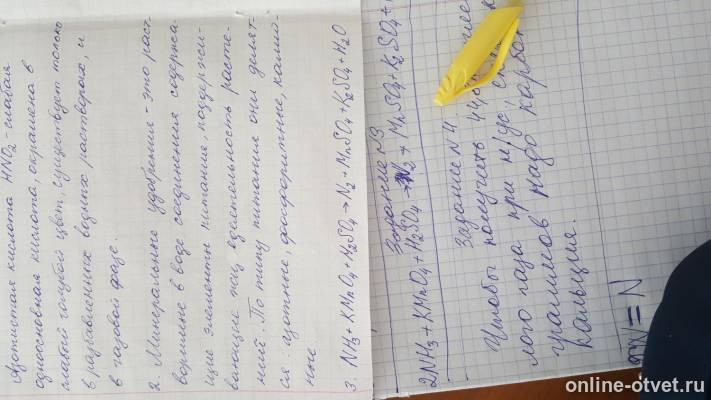 Азотистая кислота HNO2 - слабая
одноосновная кислота, окрашена в
слабый голубой цвет, существует только
в разбавленных водных растворах, и
в газовой фазе.
2. Минеральные удобрения - это раст
воримые в воде соединения содержа
щие элементы питания, поддержи-
вающие жиз едеятельность расте-
ний. По типу питание они делят-
ся: азотные, фосфоритные, калий-
ные
3. NH3 + KMnO4 + H2SO4 → N2 + MnSO4 + K2SO4 + H2O
Задание N3
2NH3 + KMnO4 + H2SO4 → N2 + MnSO4 + K2SO4 +
Задание N 4
Чтобы получить
лого газа при н/ус, с
граммов надо карбон
кальция.
= N
online-otvet.ru